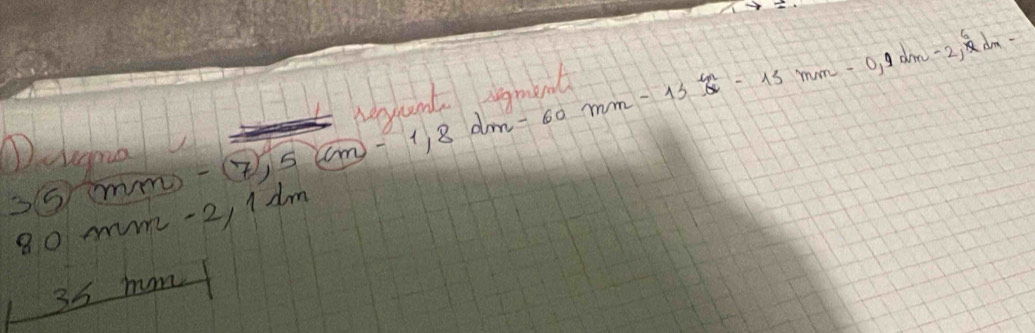 Disegna i seguenti segmenti
35 mm - 7,5 cm - 1,8 dm - 60 mm - 13 cm - 15 mm - 0,9 dm - 2,6 dm -
80 mm - 2,1 dm
35 mm